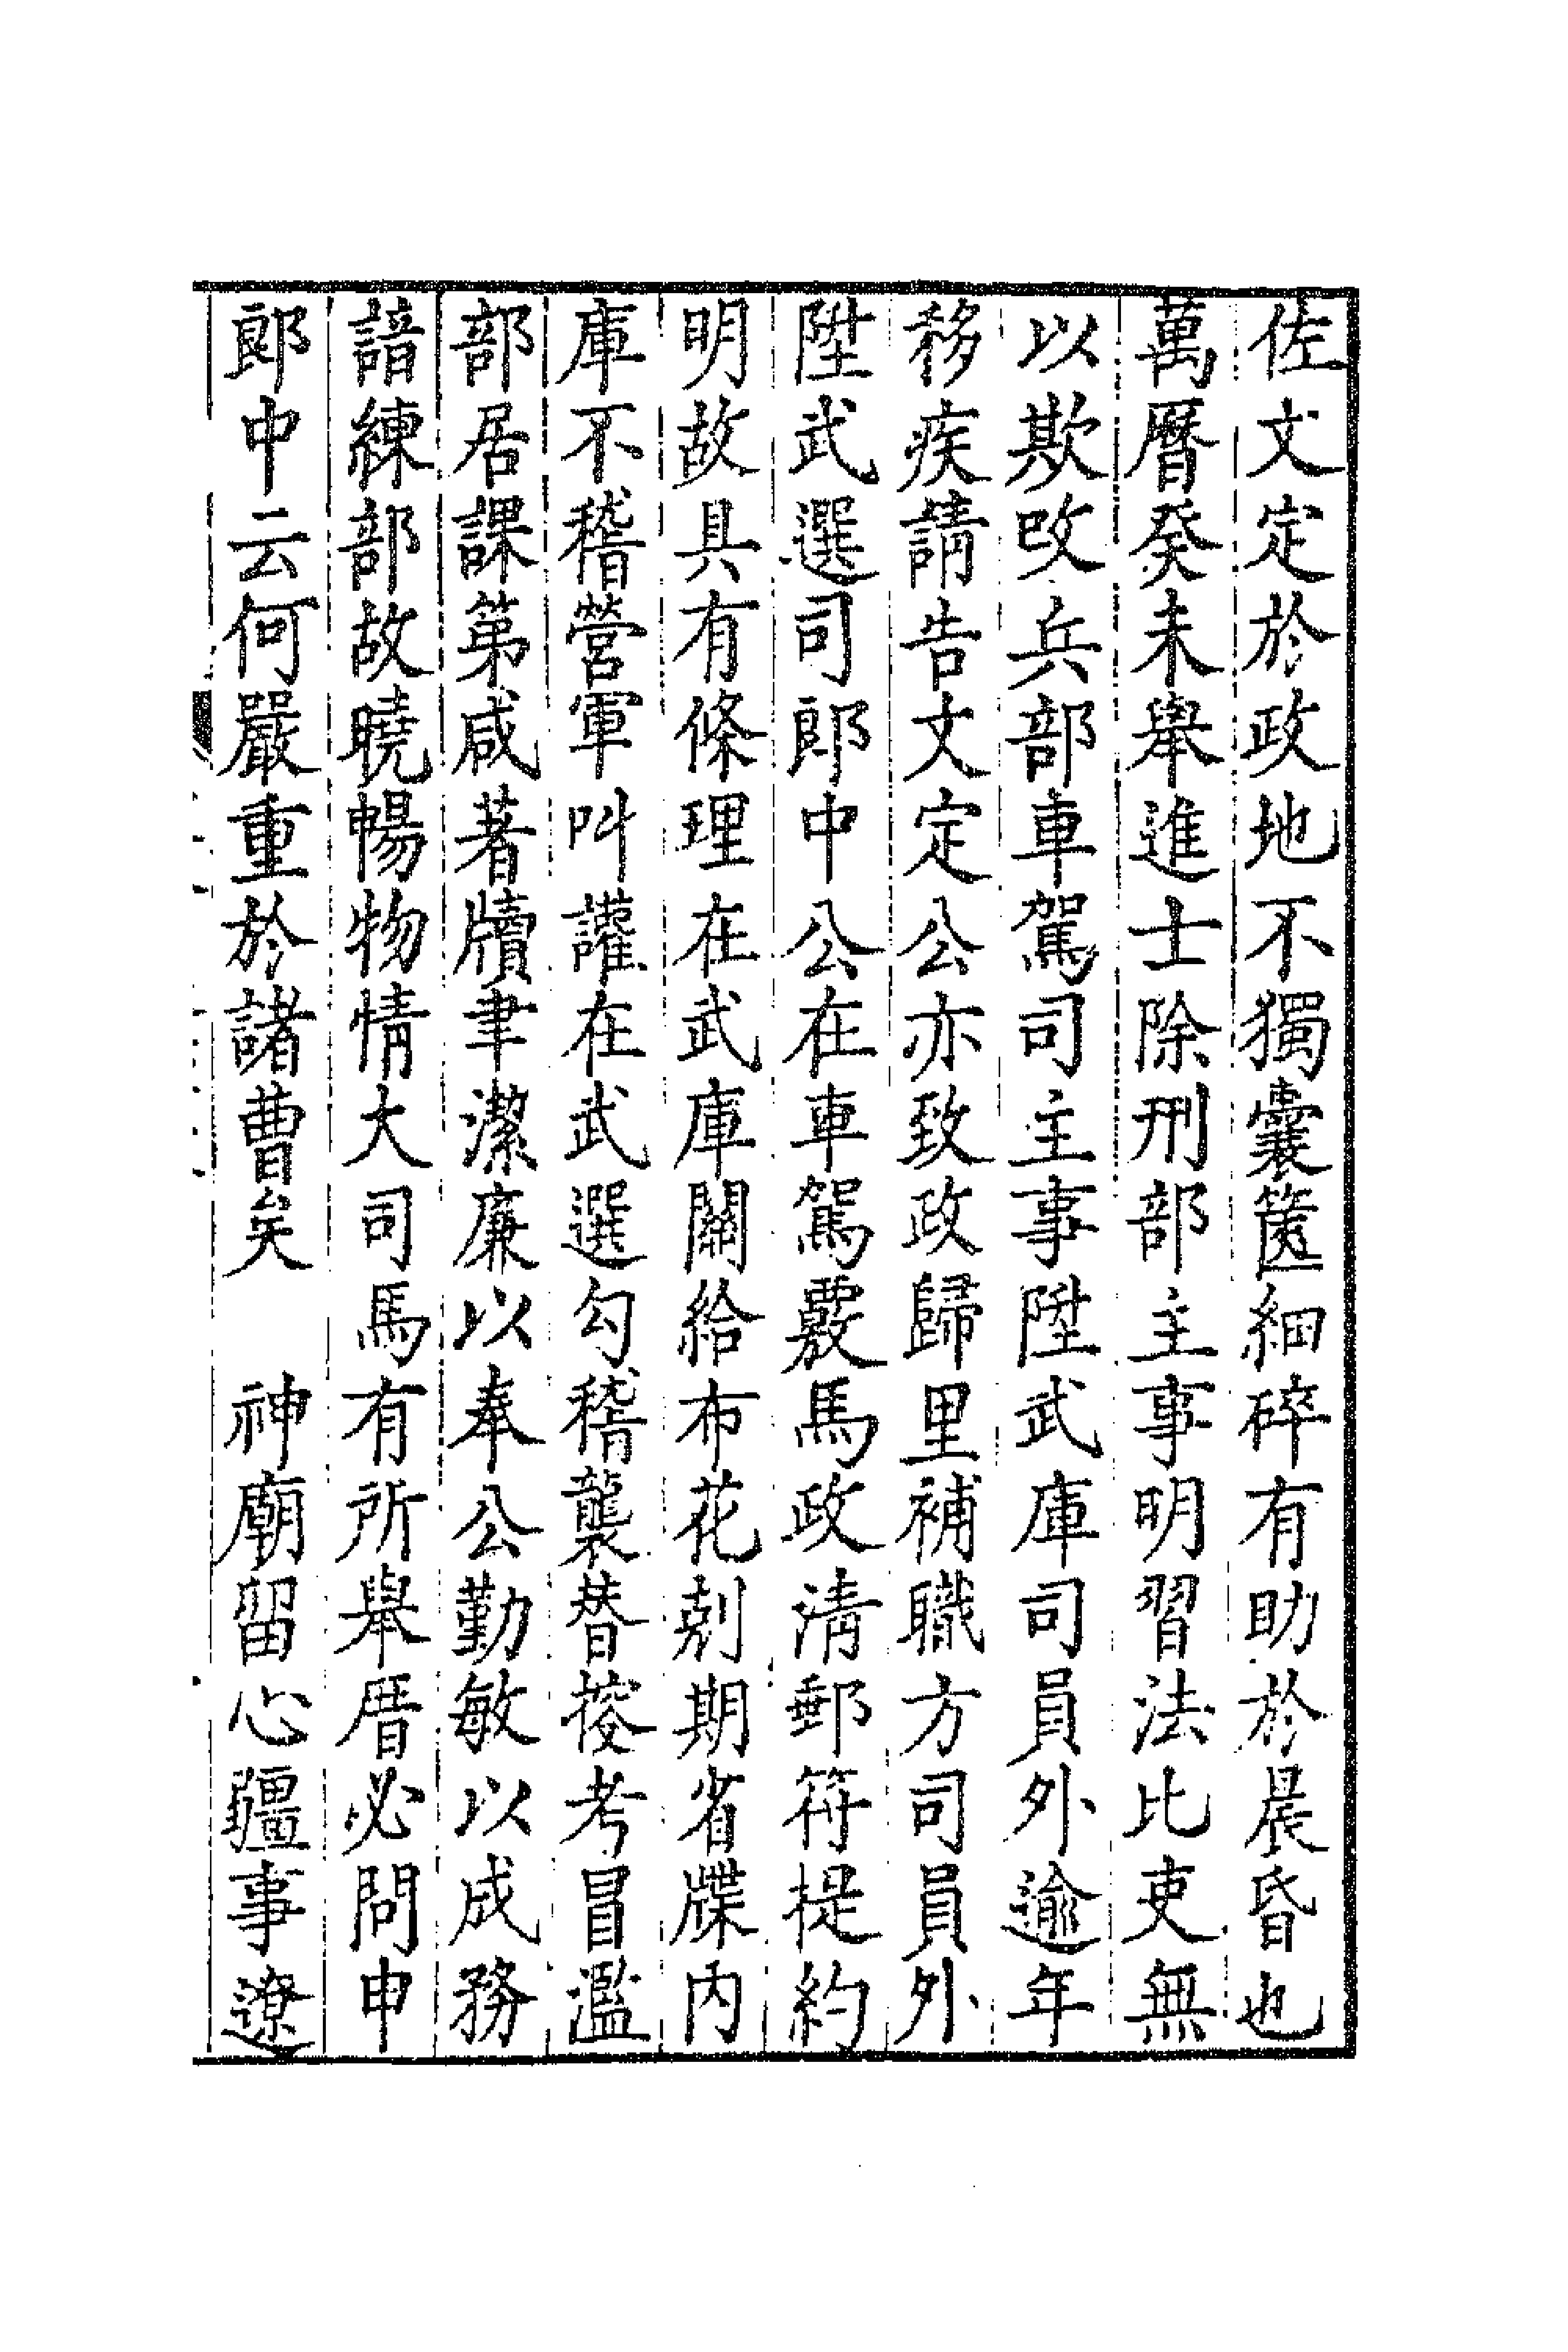 佐文定於政地不獨囊篋細碎有助於晨昏也
萬曆癸未舉進士除刑部主事明習法比吏無
以欺改兵部車駕司主事陞武庫司員外逾年
移疾請告文定公亦致政歸里補職方司員外
陞武選司郎中公在車駕覈馬政清郵符提約
明故具有條理在武庫關給布花剋期省牒內
庫不稽營軍叫讙在武選勾稽襲替按考冒濫
部居課第咸著牘聿潔廉以奉公勤敏以成務
諳練部故曉暢物情大司馬有所舉厝必問申
郎中云何嚴重於諸曹矣　神廟留心疆事遼